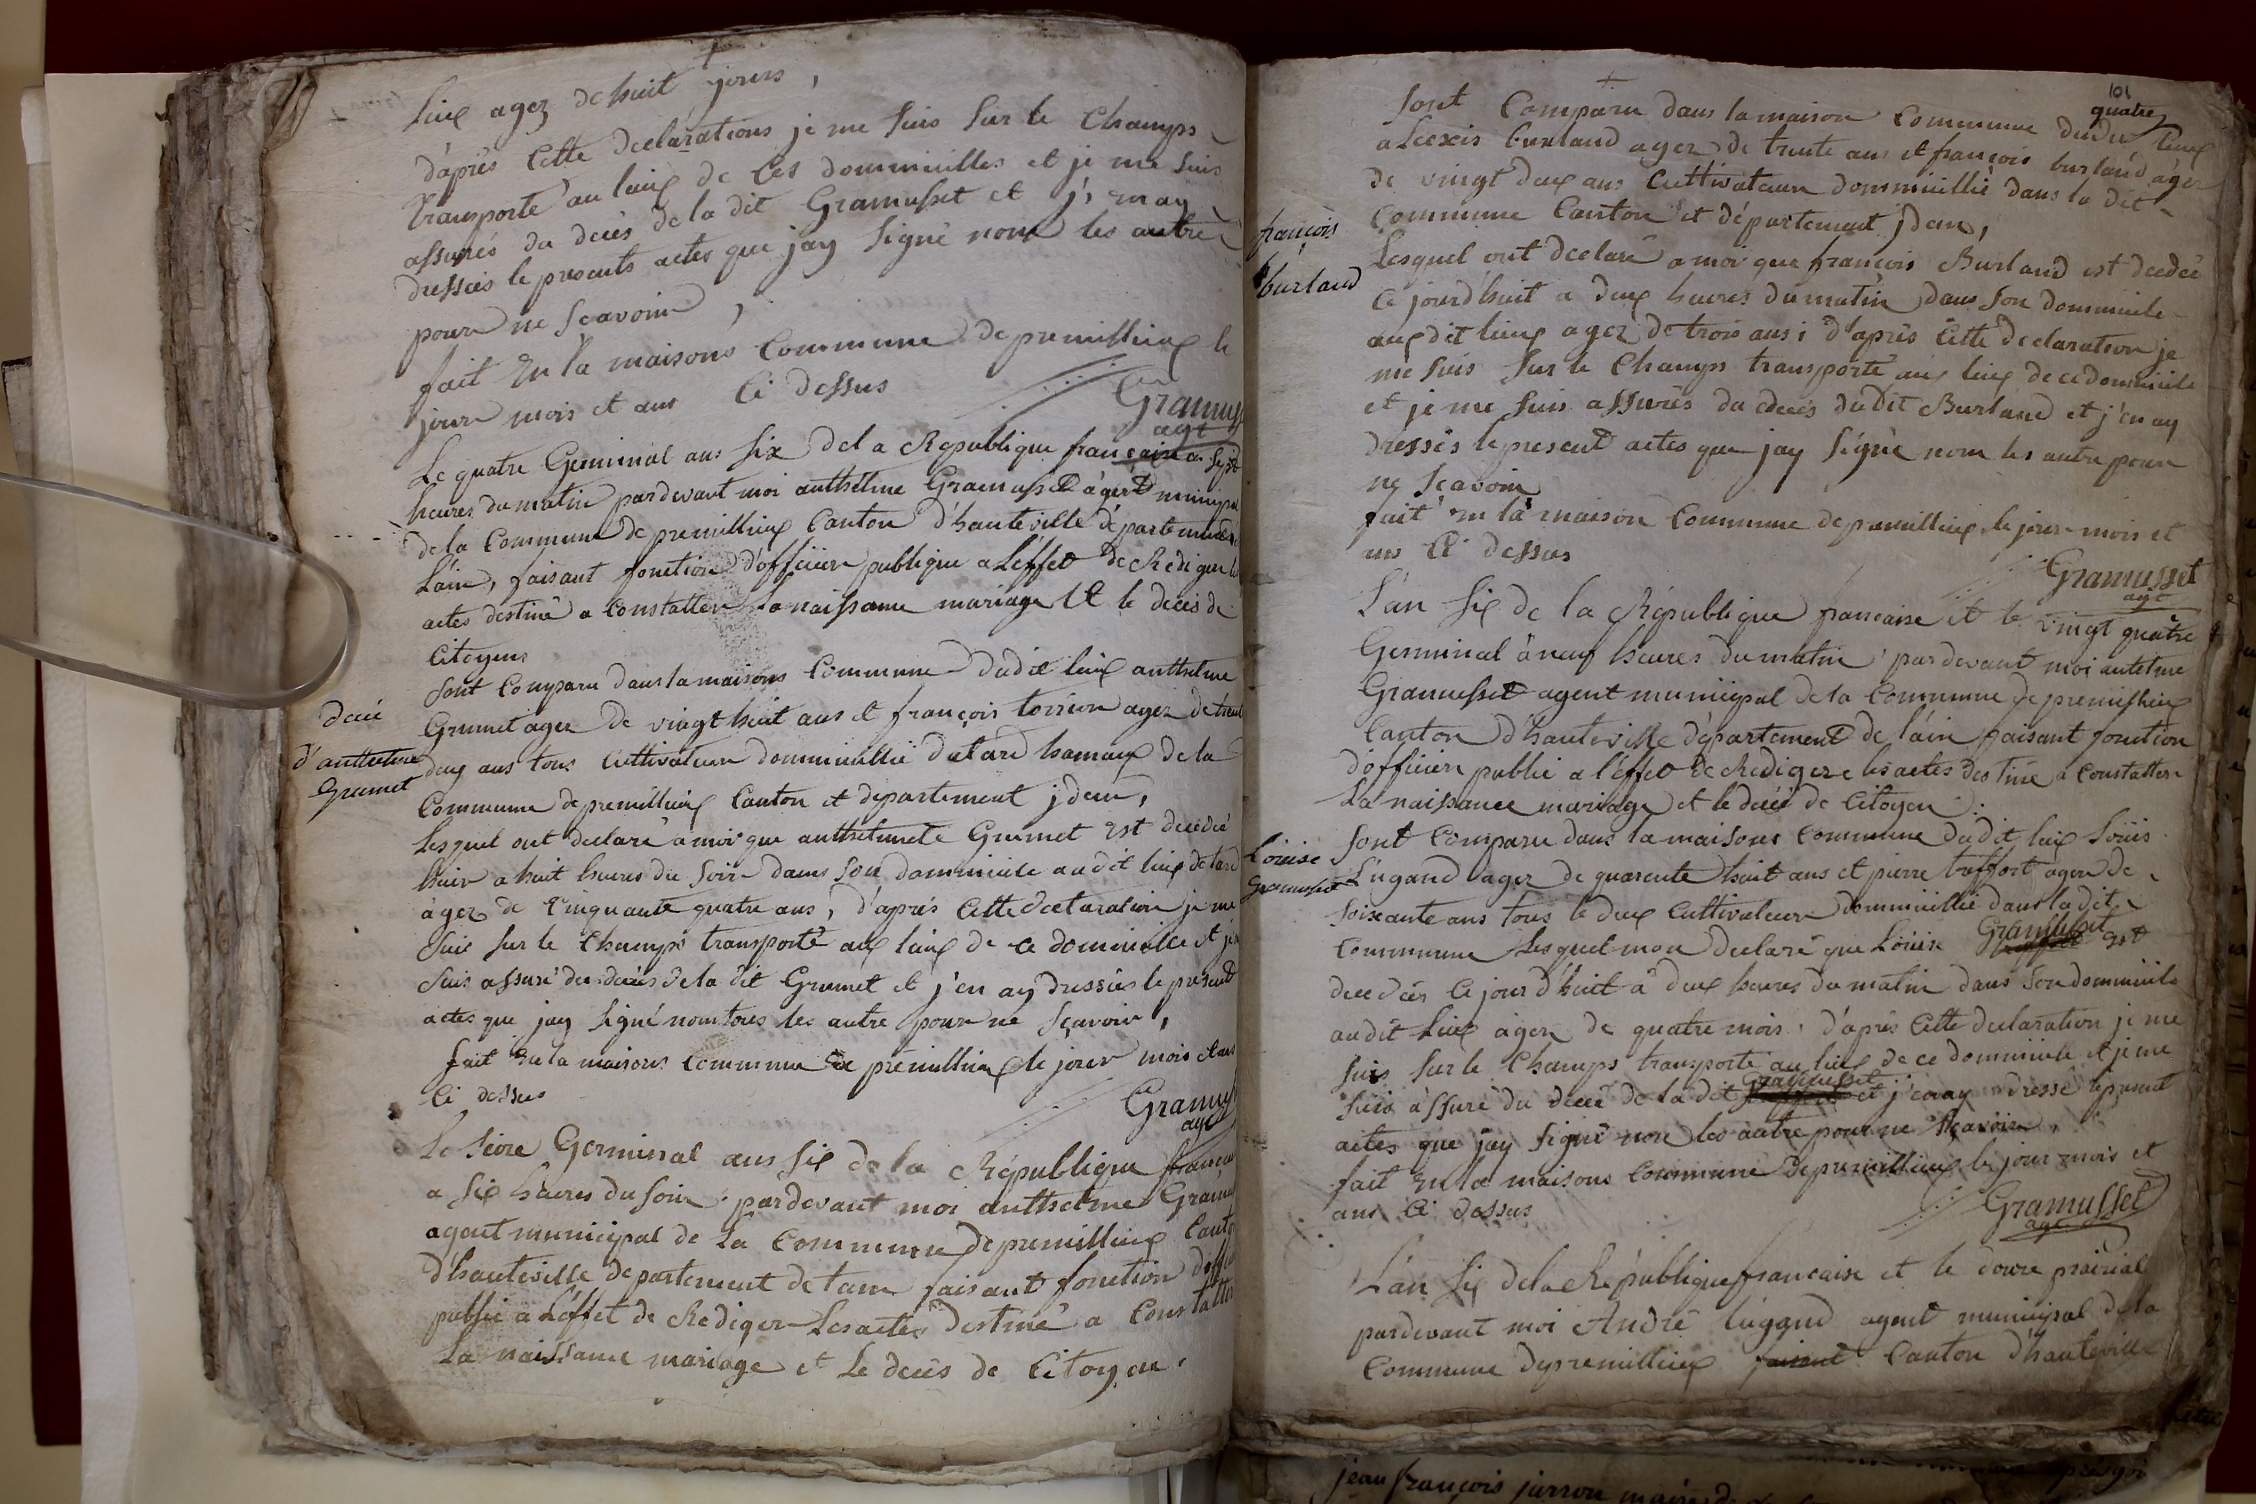 lieux agez de huit jours,
d'après cette declarations je me suis sur le champs
transporté au lieux de ces dommicilles et je me suis
assurés du decès de la dit Gramusset et j', en ay
dressées le presents actes que jay signé nom les autre
pour ne scavoire,
fait en la maisons commune de premillieux le
jour mois et ans ci dessus
Gramuss
agt
Le quatre Germinal ans six de la Republique francaise a sept
heures du matin pardevant moi anthelme Gramusset agent municipal
de la commune de premillieux canton d'hauteville departement de
L'ain, faisant fonction d'officier publique a L'effet de Rediger les
actes destiné a constatter La naissance mariage et le decès de
citoyens
sont comparu dans la maisons commune dudit lieux anthelme
Grumet agez de vingt huit ans et françois
deux ans tous cultivateur dommicillié hameaux de la
commune de premillieux canton et departement jdem,
Lesquel ont declaré a moi que Grumet est decedée
hier a huit heures du soir dans son dommicile audit lieux
âgez de cinquante quatre ans, d'après cette declaration je me
suis sur le champs transporté aux lieux de ce domicille et je
suis assuré du decès de la dit Grumet et j'en ay dressées le present
actes que jay signé nom tous les autre pour ne sçavoir,
fait en la maisons commune de premillieux le jour mois et ans
ci dessus
Gramuss
agt
decé
d'anthelme
Grumet
Le seize Germinal ans six de la République francai
a six heures du soir pardevant moi anthelme Gramu
agent municipal de la commune de premillieux canto
d'hauteville departement de lain faisant fonction d'offi
public a L'effet de Rediger Les actes destiné a constatter
La naissance mariage et Le decès de citoyen.
101
quatre
sont comparu dans la maison commune dudit lieux
alexis burland agez de trente ans et françois burland âgez
de vingt deux ans cultivateur dommicillié dans la dit
commune canton et département jdem,
françois
burland
Lesquel ont declaré a moi que françois Burland est decedé
ce jourd'huit a deux heures du matin dans son dommicile
auxdit lieux agez de trois ans; d'après cette declaration je
me suis sur le champs transporté aux lieux de ce domicile
et je me suis assurés du decès dudit Burland et j'en ay
dressés le present actes que jay signé nom les autre pour
ne scavoir
fait en la maison commune de premillieux le jour mois et
ans ci dessus
Gramusset
agt
L'an six de la République francaise et le vingt quatre
Germinal à neuf heures du matin pardevant moi antelme
Gramusset agent municipal de la commune de premillieux
canton d'hauteville departement de l'ain faisant fonction
d'officier public a l'effet de Redigere les actes destiné a constatter
La naissance mariage et le decès de citoyen.
Louise
Gramusset
sont comparu dans la maisons commune dudit lieux Loüis
Lugand agez de quarente huit ans et pierre treffort agez de
soixante ans tous le deux cultivateur dommicillié dans la dit
commune Lesquel mon declaré que Loüise Gramusset est
decedées ce jourd'huit à deux heures du matin dans son dommicile
audit lieux âgez de quatre mois, d'après cette declaration je me
suis sur le champs transporté au lieux de ce dommicile et je me
Gramusset
suis assuré du decé de la dit et j'en ay dressé le present
actes que jay signé non les autre pour ne scavoir,
fait en la maisons commune de premillieux le jour mois et
ans ci dessus
Gramusset
agt
L'an six de la République francaise et le douze prairial
pardevant moi André lugand agent municipal de la
commune de premillieux faisant canton d'hauteville
jean françois